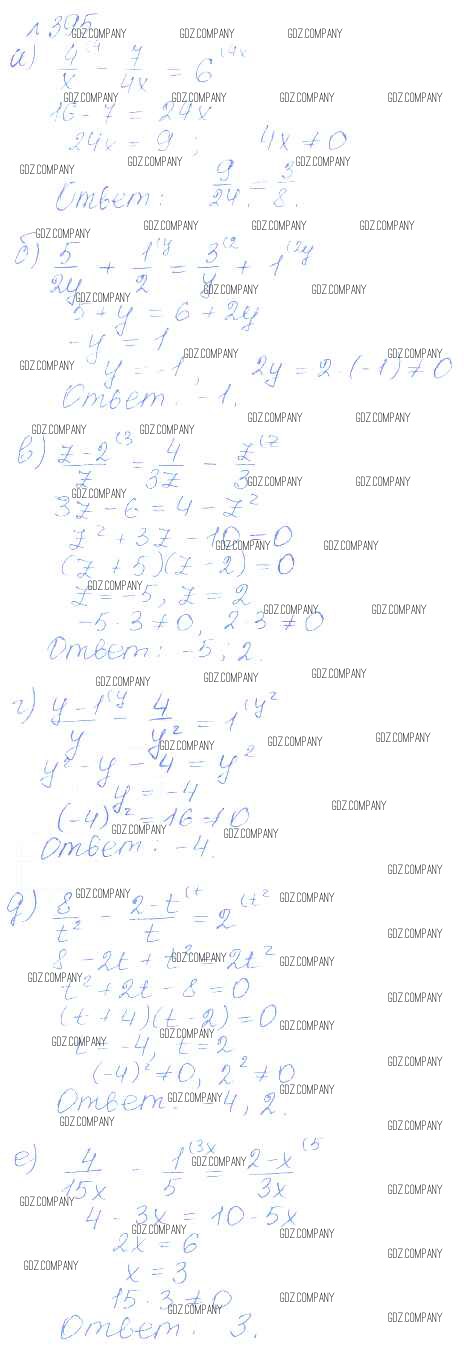 № 395
а) 4/x (4 - 7/4x = 6 (4x
16 - 7 = 24x
24x = 9 ; 4x ≠ 0
Ответ: 9/24 = 3/8.
б) 5/2y + 1/2 (y = 3/y (2 + 1 (2y
5 + y = 6 + 2y
-y = 1
y = -1, 2y = 2·(-1) ≠ 0
Ответ: -1.
в) z-2/z (3 = 4/3z - z/3 (z
3z - 6 = 4 - z²
z² + 3z - 10 = 0
(z + 5)(z - 2) = 0
z = -5, z = 2
-5·3 ≠ 0, 2·3 ≠ 0
Ответ: -5; 2.
г) y-1/y (y - 4/y² = 1 (y²
y² - y - 4 = y²
y = -4
(-4)² = 16 ≠ 0
Ответ: -4.
д) 8/t² - 2-t/t (t = 2 (t²
8 - 2t + t² = 2t²
t² + 2t - 8 = 0
(t + 4)(t - 2) = 0
t = -4, t = 2
(-4)² ≠ 0, 2² ≠ 0
Ответ: -4, 2.
е) 4/15x - 1/5 (3x = 2-x/3x (5
4 - 3x = 10 - 5x
2x = 6
x = 3
15·3 ≠ 0
Ответ: 3.
GDZ.COMPANY